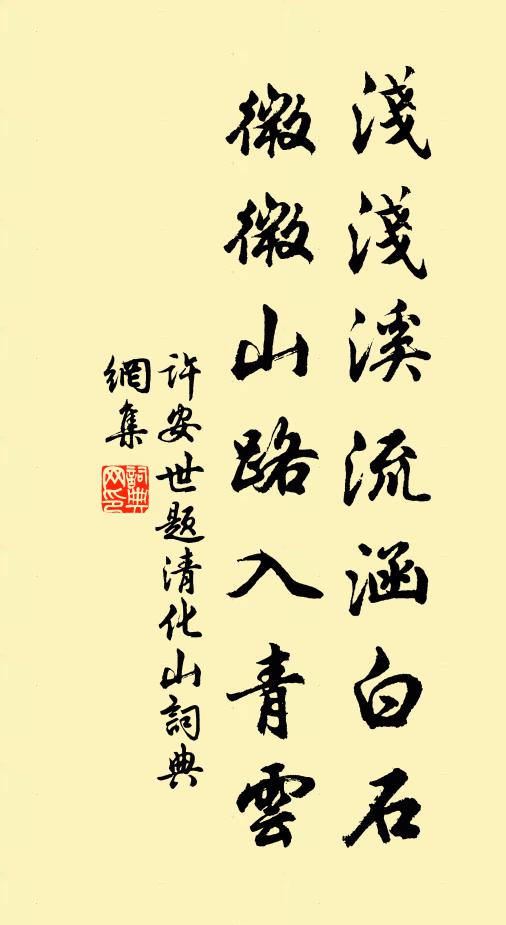 淺淺溪流涵白石
微微山路入青雲
許安世題清化山詞典
網集
詞典網印